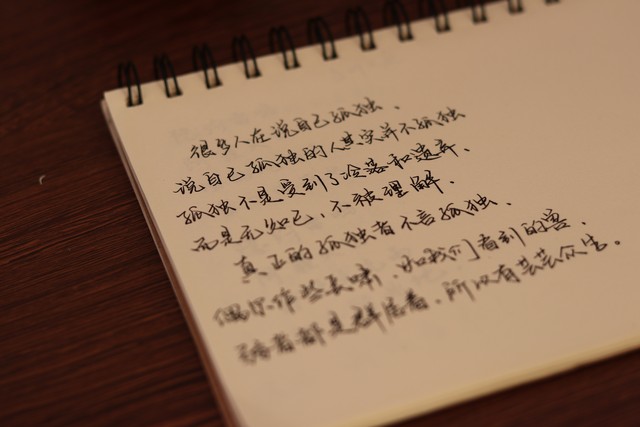 很多人在说自己孤独、
说自己孤独的人其实并不孤独
孤独不是受到了冷落和遗弃、
而是无知己，不被理解．
真正的孤独者不言孤独、
偶尔作些长啸，如我们看到的害．
弱者都是群居者．所以有芸芸众生。